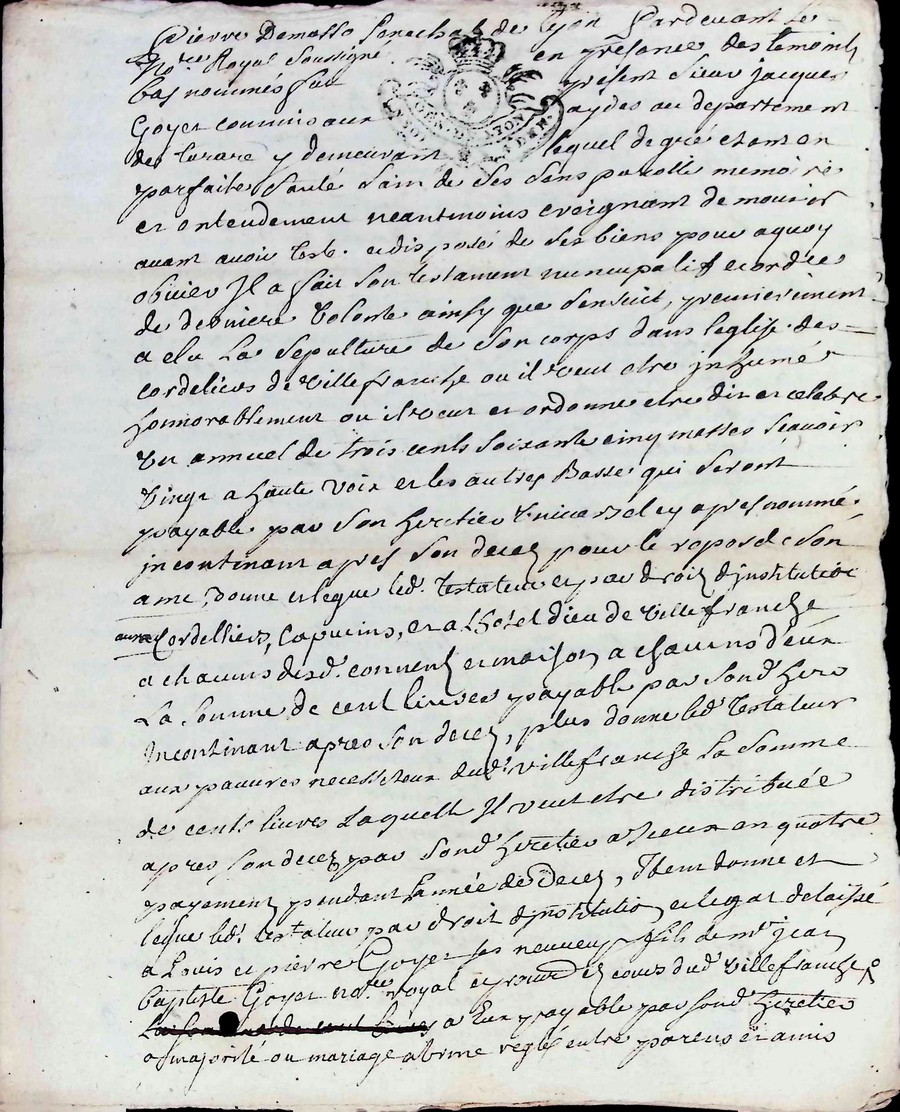 Pierre Demasso Senechal de Lyon Pardevant le
No.re Royal Soussigné en présence des temoins
bas nommés fut présent sieur jacques
Goyet commis aux aydes au departement
de tarare y demeurant lequel de gré etant en
parfaite Santé Sain de Ses Sens parolle memoire
et entendement neantmoins creignant de mourir
avant avoir test. et disposé de Ses biens pour a quoy
obvier Il a fait Son testament nuncupatif et ordre
de derniere Volonté ainsy que Sensuit, premierement
a elu La Sepulture de Son corps dans leglise des
cordeliers de villefranche ou il veut etre jnhumé
honnorablement ou il veut et ordonne etre dit et celebre
Un annuel de trois cents soixante cinq messes sçavoir
Vingt a haute voix et les autres Basse qui seront
payable par Son heretier Universel cy apres nommé
jncontinant apres Son decez pour le repos de Son
ame, donne et legue led. testateur et par droit d'jnstitution
aux Cordelliers, Capucins, et a Lhotel dieu de villefranche
a chacuns desd. couvents et maison a chacuns d'eux
La Somme de cent livres payable par Sond. here
Incontinant apres Son decez, plus donne led. testateur
aux pauvres necessiteux dud. villefranche La Somme
de cents livres Laquelle Il veut etre distribuée
apres Son decez par Sond. heretier a Iceux en quatre
payement pendant Lannée de Decez, Item donne et
legue led. testateur par droit d'jnstitution et legat delaissé
a Louis et pierre Goyet Ses neveux fils de Mr jean
baptiste Goyet no.re royal et procur. ez cours dud. villefranche
a Eux payable par Sond. heretier
a majorité ou mariage a terme reglé entre parens et amis